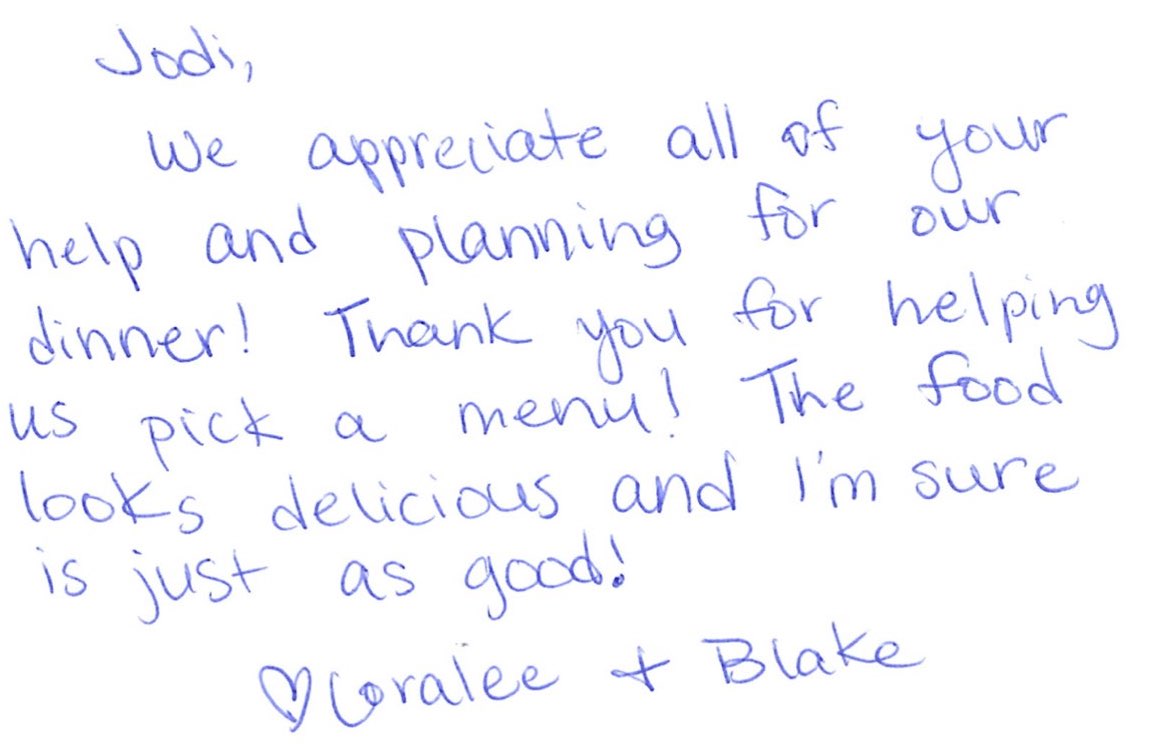 Jodi,
We appreciate all of your
help and planning for our
dinner! Thank you for helping
us pick a menu! The food
looks delicious and I'm sure
is just as good!
♡Coralee + Blake